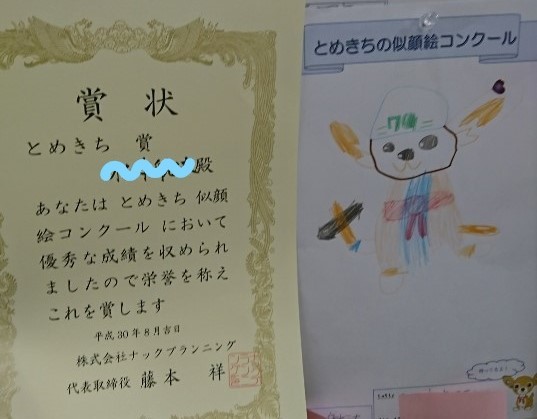 賞状
とめきち 賞
殿
あなたは とめきち 似顔
絵コンクール において
優秀な成績を収められ
ましたので栄誉を称え
これを賞します
平成30年8月吉日
株式会社ナックプランニング
代表取締役 藤本 祥
とめきちの似顔絵コンクール